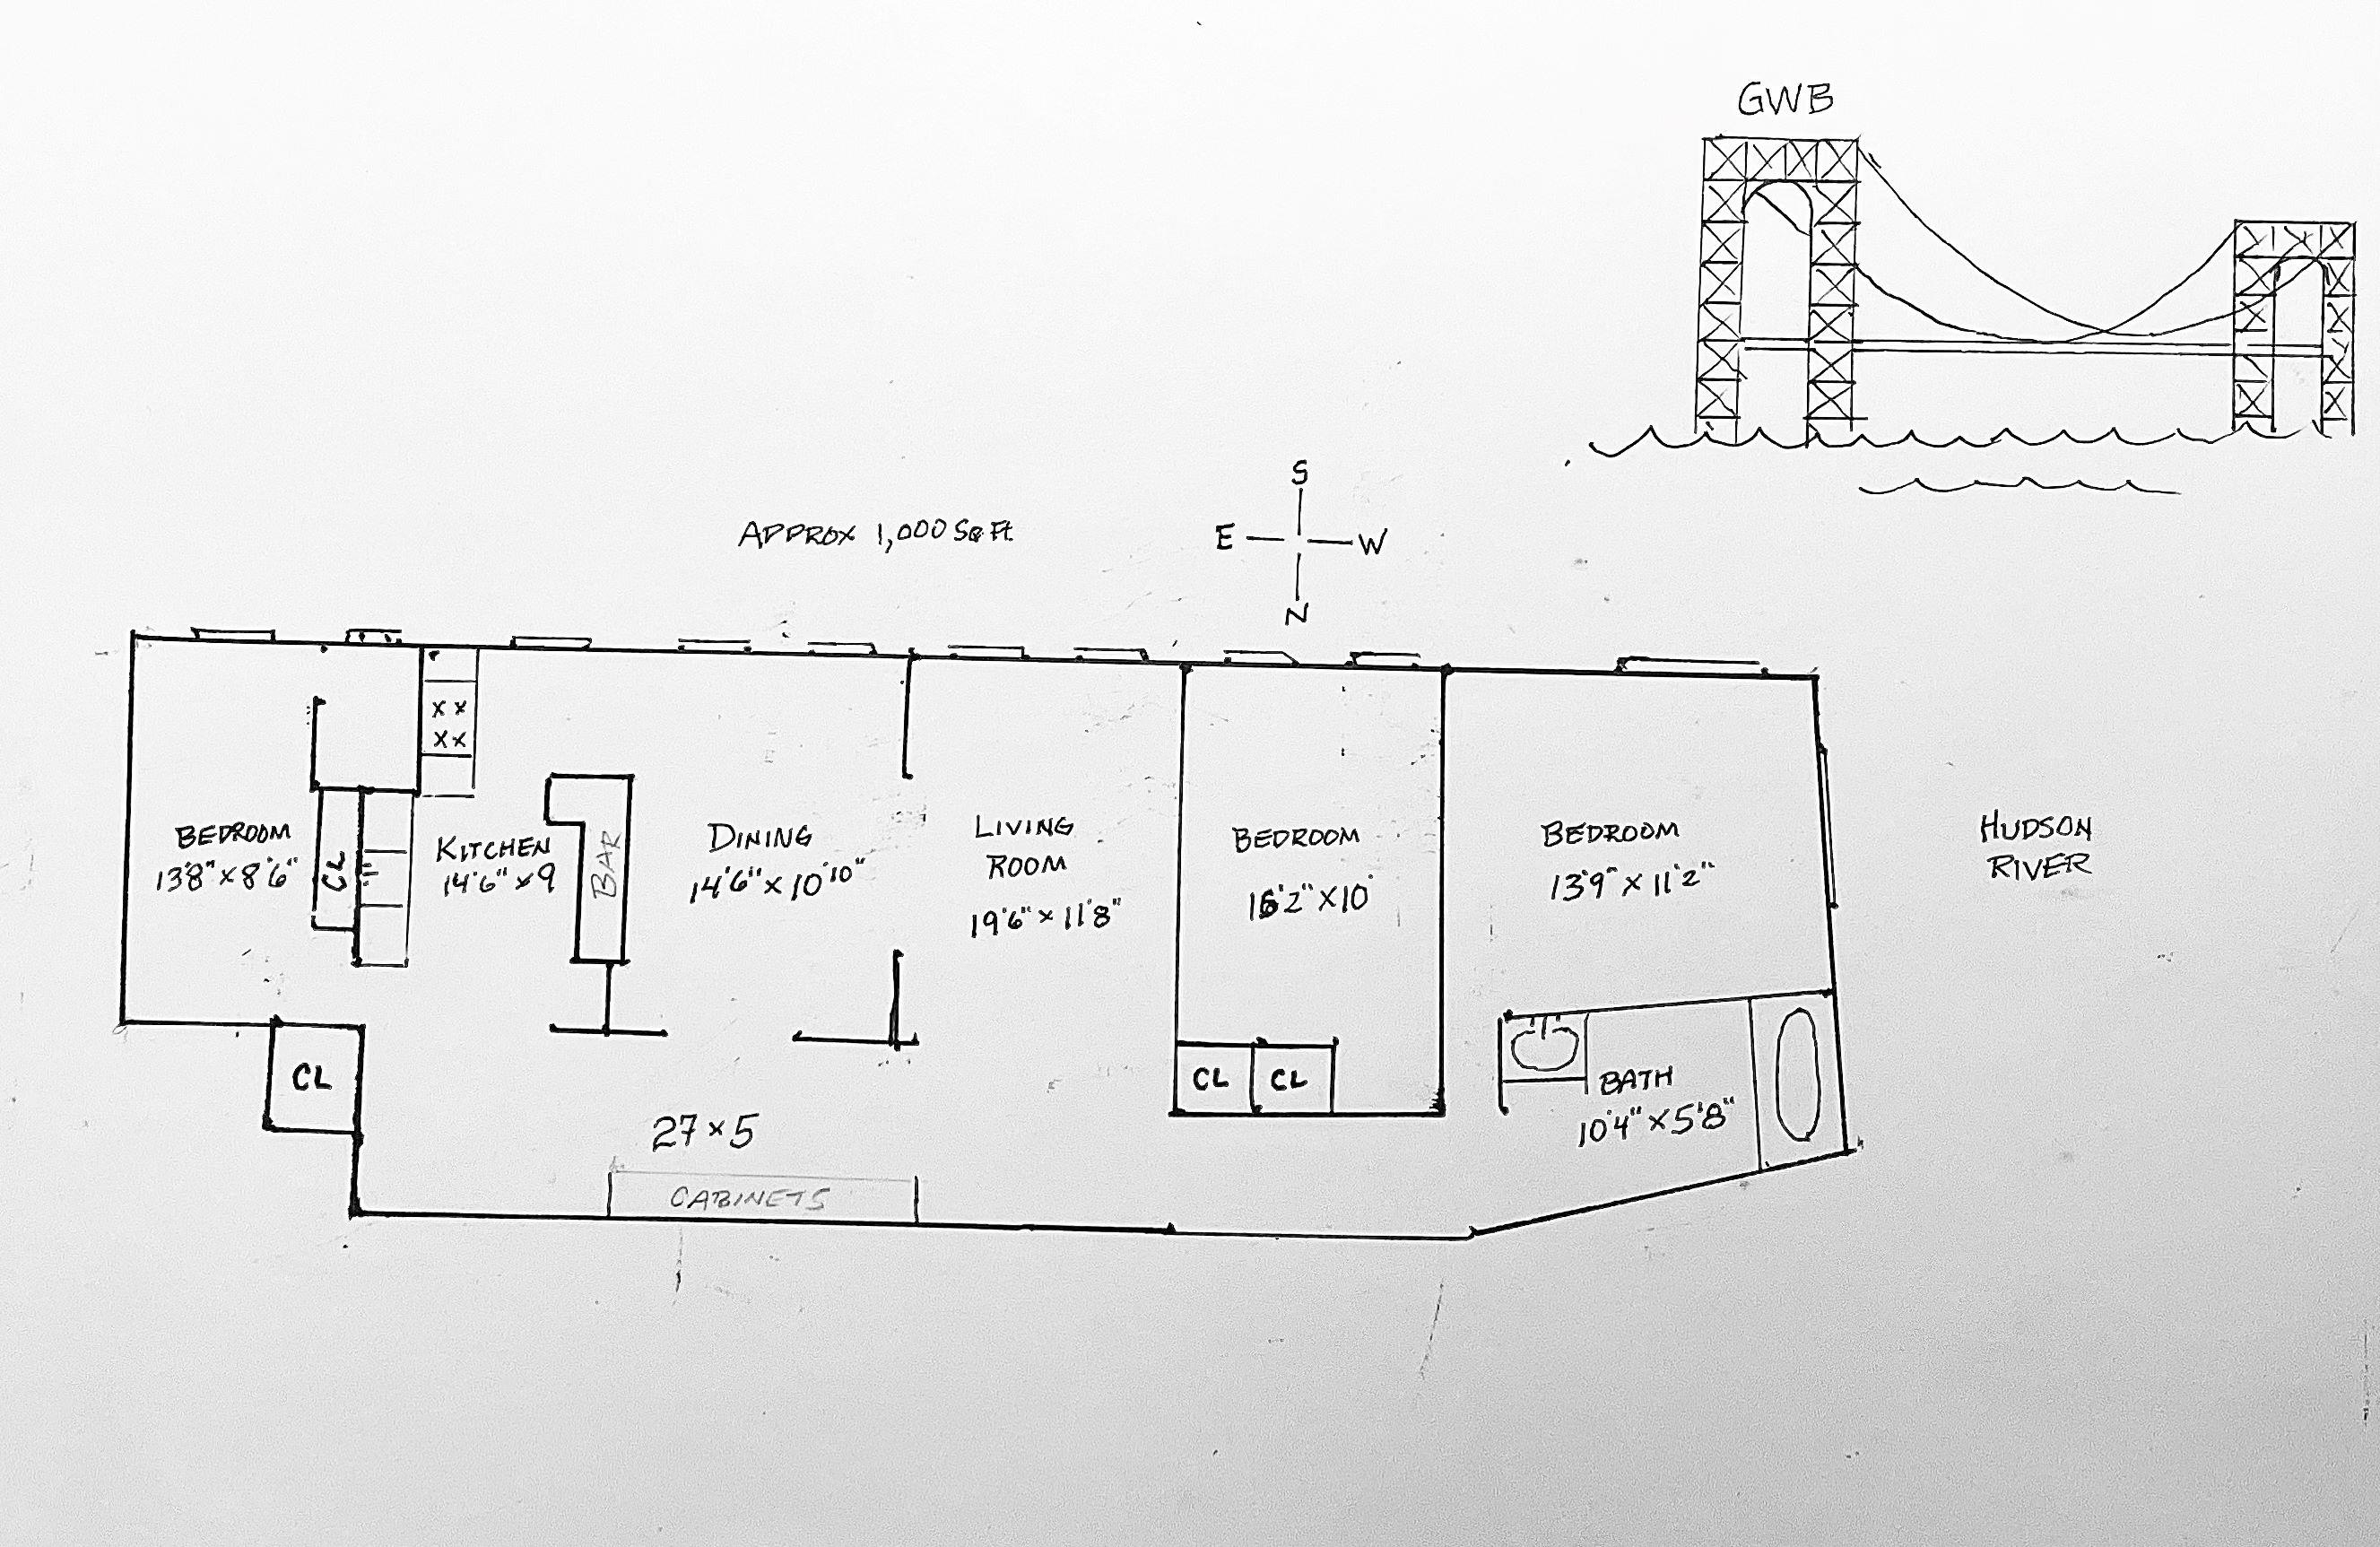 GWB
APPROX 1,000 Sq Ft.
S
E
W
N
BEDROOM
13'8" x 8'6"
CL
KITCHEN
14'6" x 9
BAR
DINING
14'6" x 10'10"
LIVING
ROOM
19'6" x 11'8"
BEDROOM
x 10'
BEDROOM
13'9" x 11'2"
HUDSON
RIVER
CL
CL
CL
BATH
10'4" x 5'8"
27 x 5
CABINETS